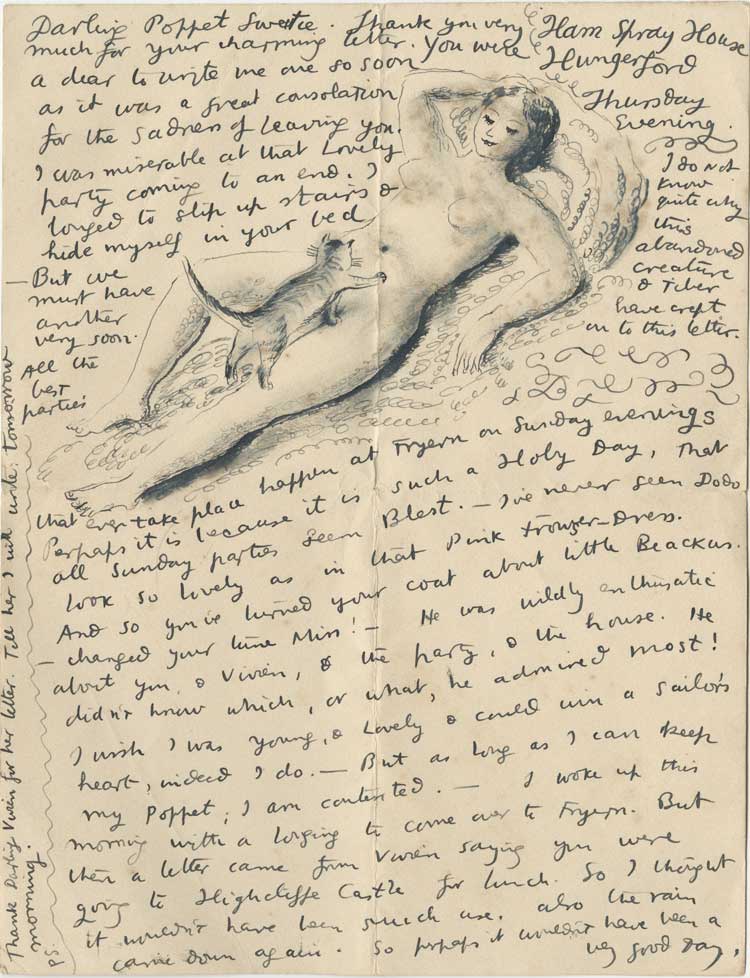 Ham Spray House
Hungerford
Thursday
Evening.
Darling Poppet Sweetie. Thank you very
much for your charming letter. You were
a dear to write me one so soon
as it was a great consolation
for the sadness of leaving you.
I was miserable at that Lovely
party coming to an end. I
longed to slip up stairs &
hide myself in your bed
— But we
must have
another
very soon.
All the
best
parties
I do not
know
quite why
this
abandoned
creature
& Tiber
have crept
on to this letter.
that ever take place happen at Fryern on Sunday evenings
Perhaps it is because it is such a Holy Day, that
all Sunday parties seem Blest. — I've never seen Dodo
look so lovely as in that Pink Trouser-Dress.
And so you've turned your coat about little Beackus.
— changed your tune Miss! — He was wildly enthusiatic
about you, & Vivien, & the party, & the house. He
didn't know which, or what, he admired most!
I wish I was young, & Lovely & could win a sailor's
heart, indeed I do. — But as long as I can keep
my Poppet, I am contested. — I woke up this
morning with a longing to come over to Fryern. But
then a letter came from Vivien saying you were
going to Highcliffe Castle for lunch. So I thought
it wouldn't have been much use. also the rain
came down again. So perhaps it wouldn't have been a
very good Day,
P.S.
Thank Darling Vivien for her letter. Tell her I will write. tomorrow
morning.